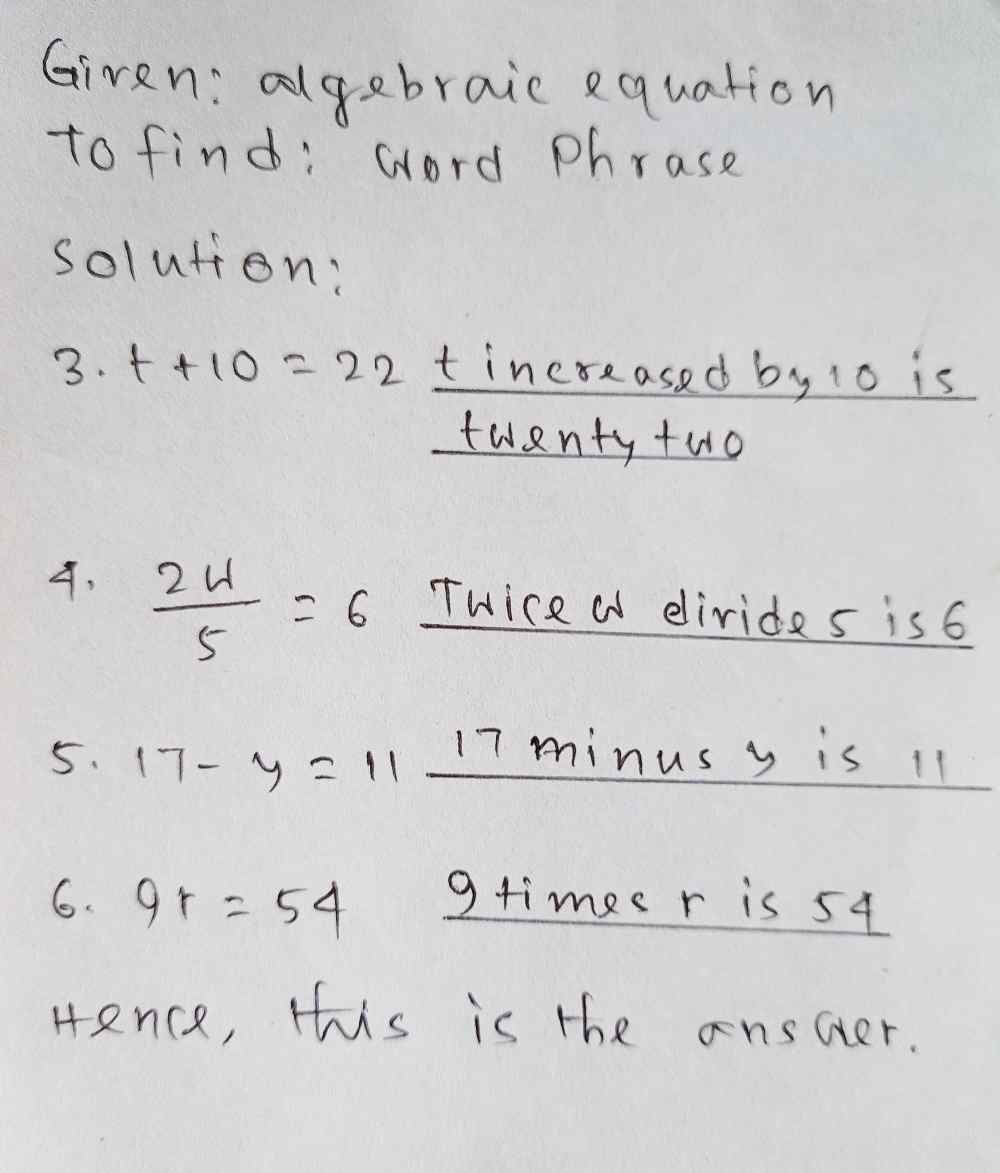 Given: algebraic equation
To find: word Phrase
Solution:
3. t + 10 = 22 t increased by 10 is
twenty two
4. 2w/5 = 6 Twice w divide 5 is 6
5. 17 - y = 11 17 minus y is 11
6. 9r = 54 9 times r is 54
Hence, this is the answer.